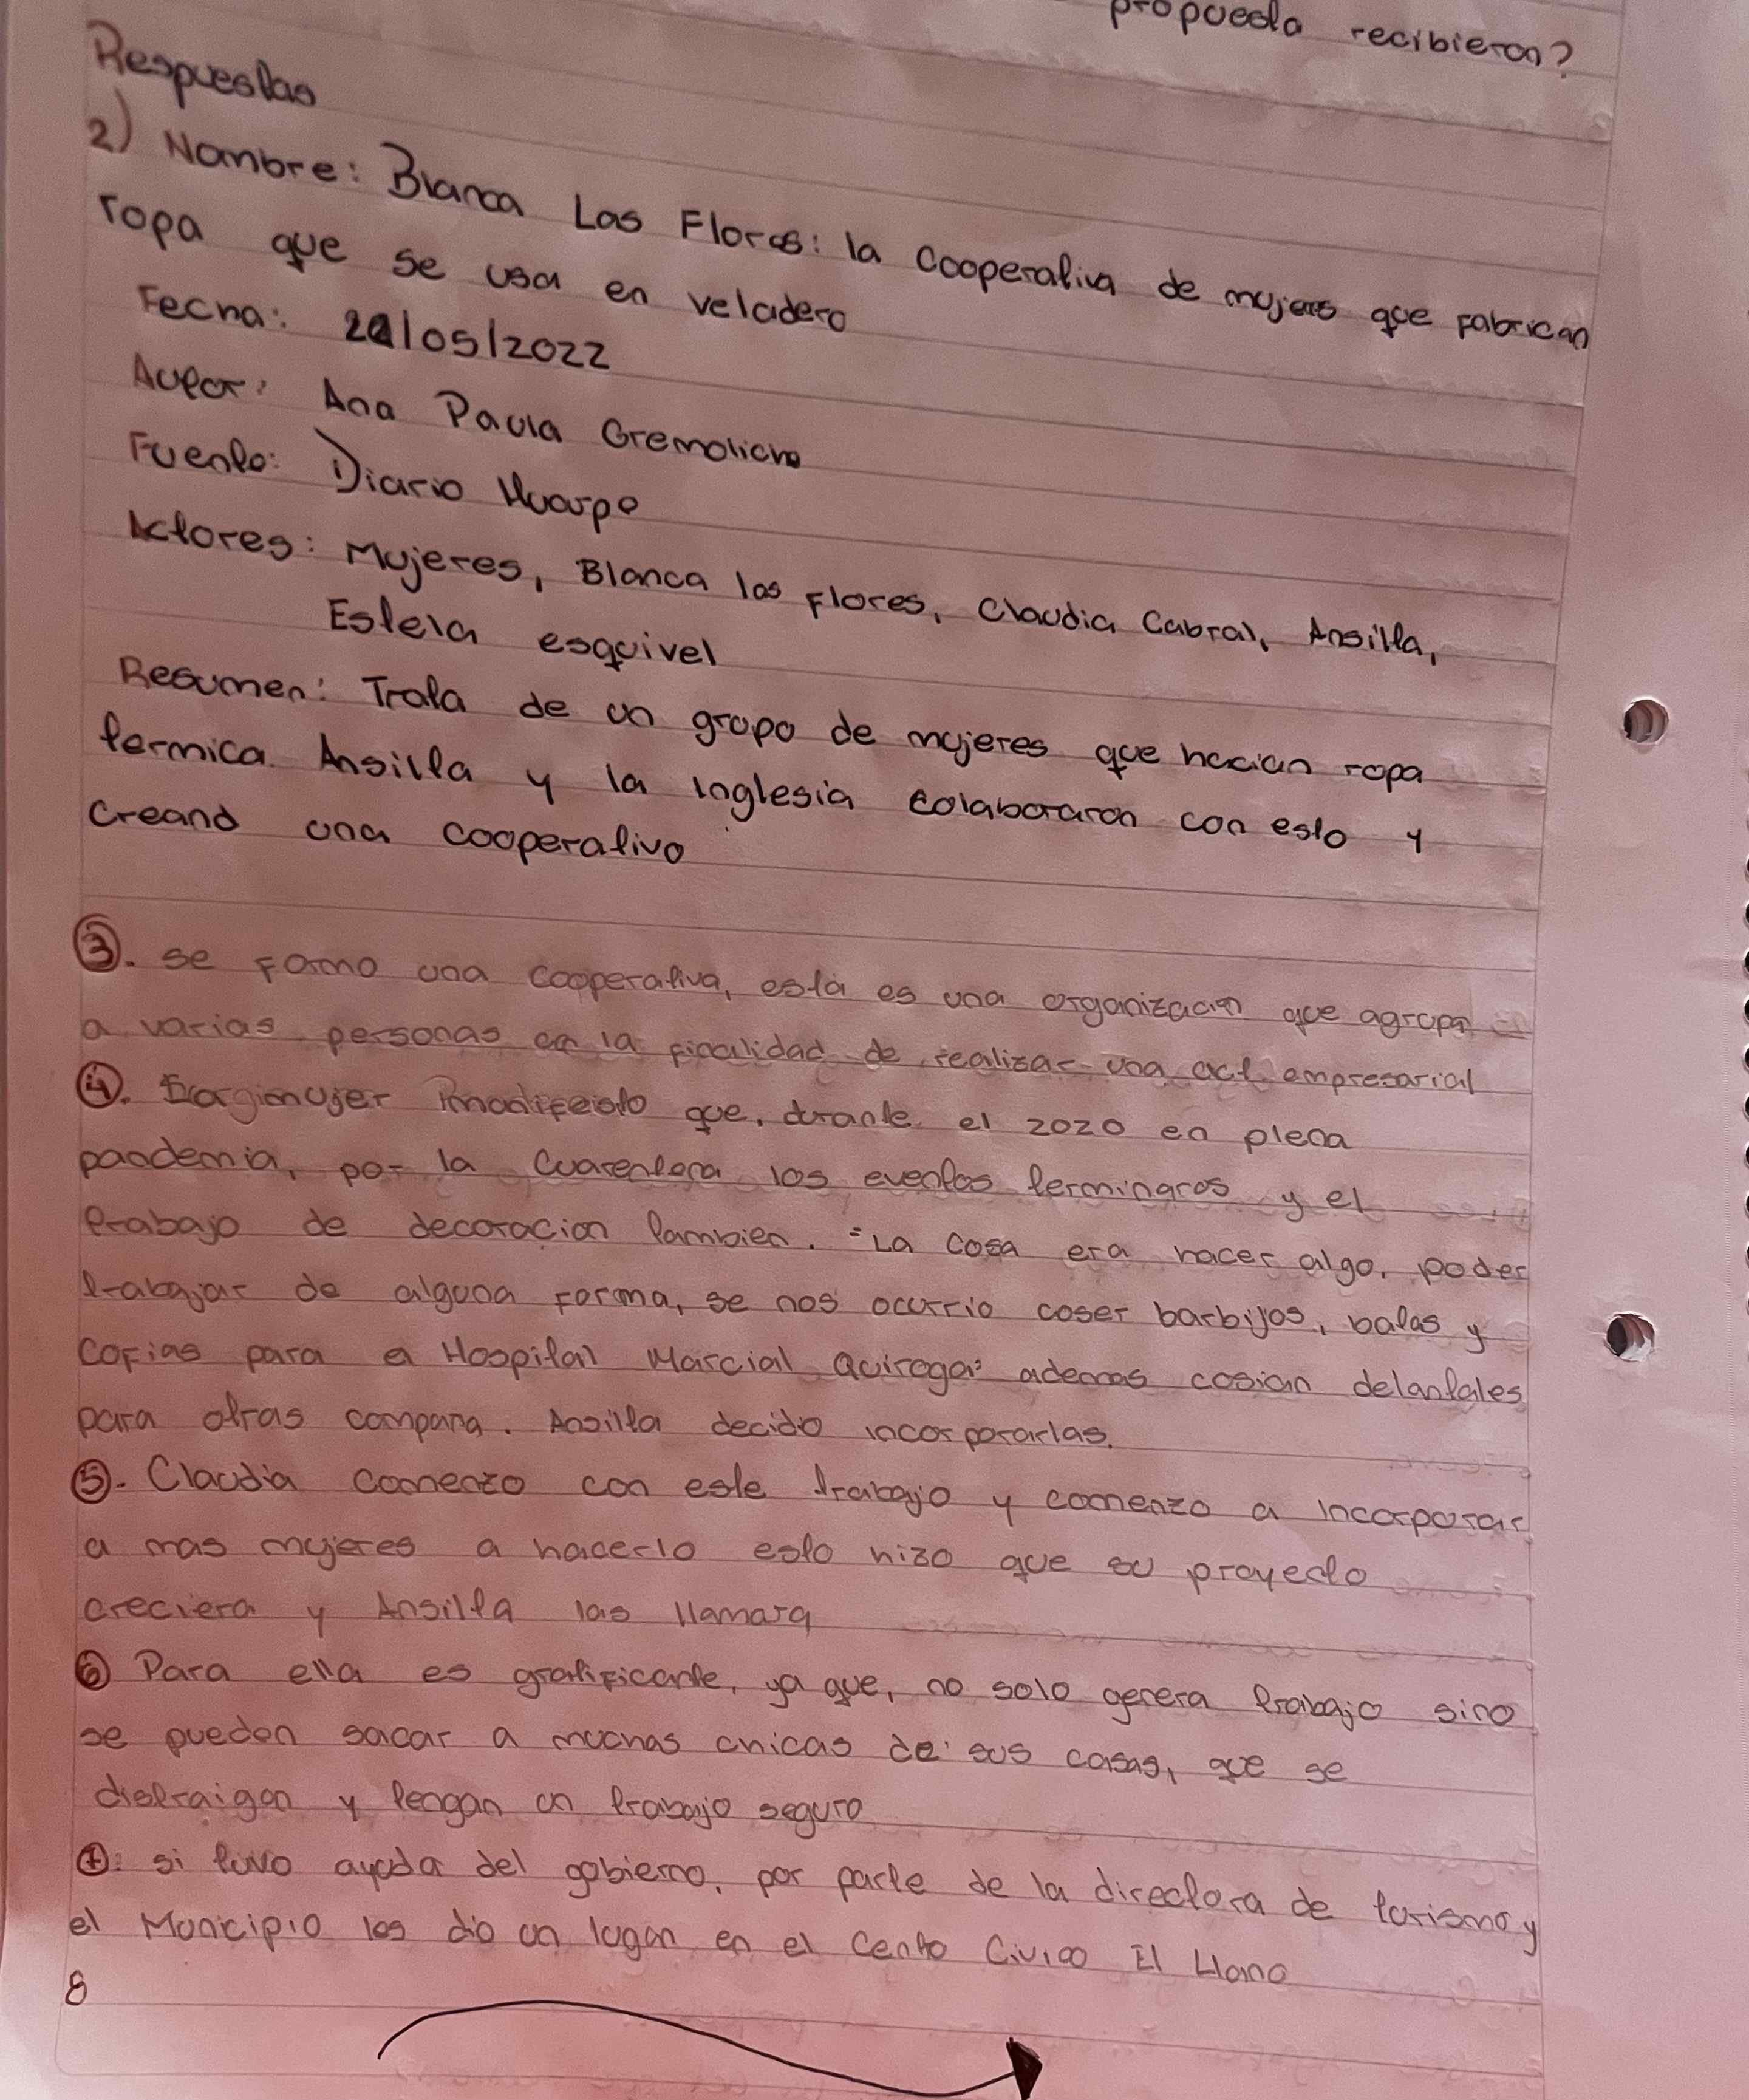 propuesta recibieron?
Respuestas
2) Nombre: Blanca Las Flores: la cooperativa de mujeres que fabrican
ropa que se usa en veladero
Fecha: 22/05/2022
Autor: Ana Paula Gremoliche
Fuente: Diario Huarpe
Actores: Mujeres, Blanca las flores, Claudia Cabral, Ansilta,
Estela esquivel
Resumen: Trata de un grupo de mujeres que hacian ropa
termica. Ansilta y la inglesia colaboraron con esto y
creand una cooperativo
③. se formo una cooperativa, esta es una organización que agrupa
a varias personas en la finalidad de realizar una act empresarial
④. manifesto que, durante el 2020 en plena
pandemia, por la cuarentena los eventos terminaros y el
trabajo de decoracion tambien. "La cosa era hacer algo, poder
trabajar de alguna forma, se nos ocurrio coser barbijos, batas y
cofias para el Hospital Marcial Quiroga" ademas cosian delantales
para otras compana. Ansilta decidio incorporarlas.
⑤. Claudia comenzo con este trabajo y comenzo a incorporar
a mas mujeres a hacerlo esto hizo que su proyecto
creciera y Ansilta las llamara
⑥ Para ella es gratificante, ya que, no solo genera trabajo sino
se pueden sacar a muchas chicas de sus casas, que se
distraigan y tengan un trabajo seguro
⑦. si tuvo ayuda del gobierno, por parte de la directora de turismo y
el Municipio les dio un lugar en el Cento Civico El Llano
8